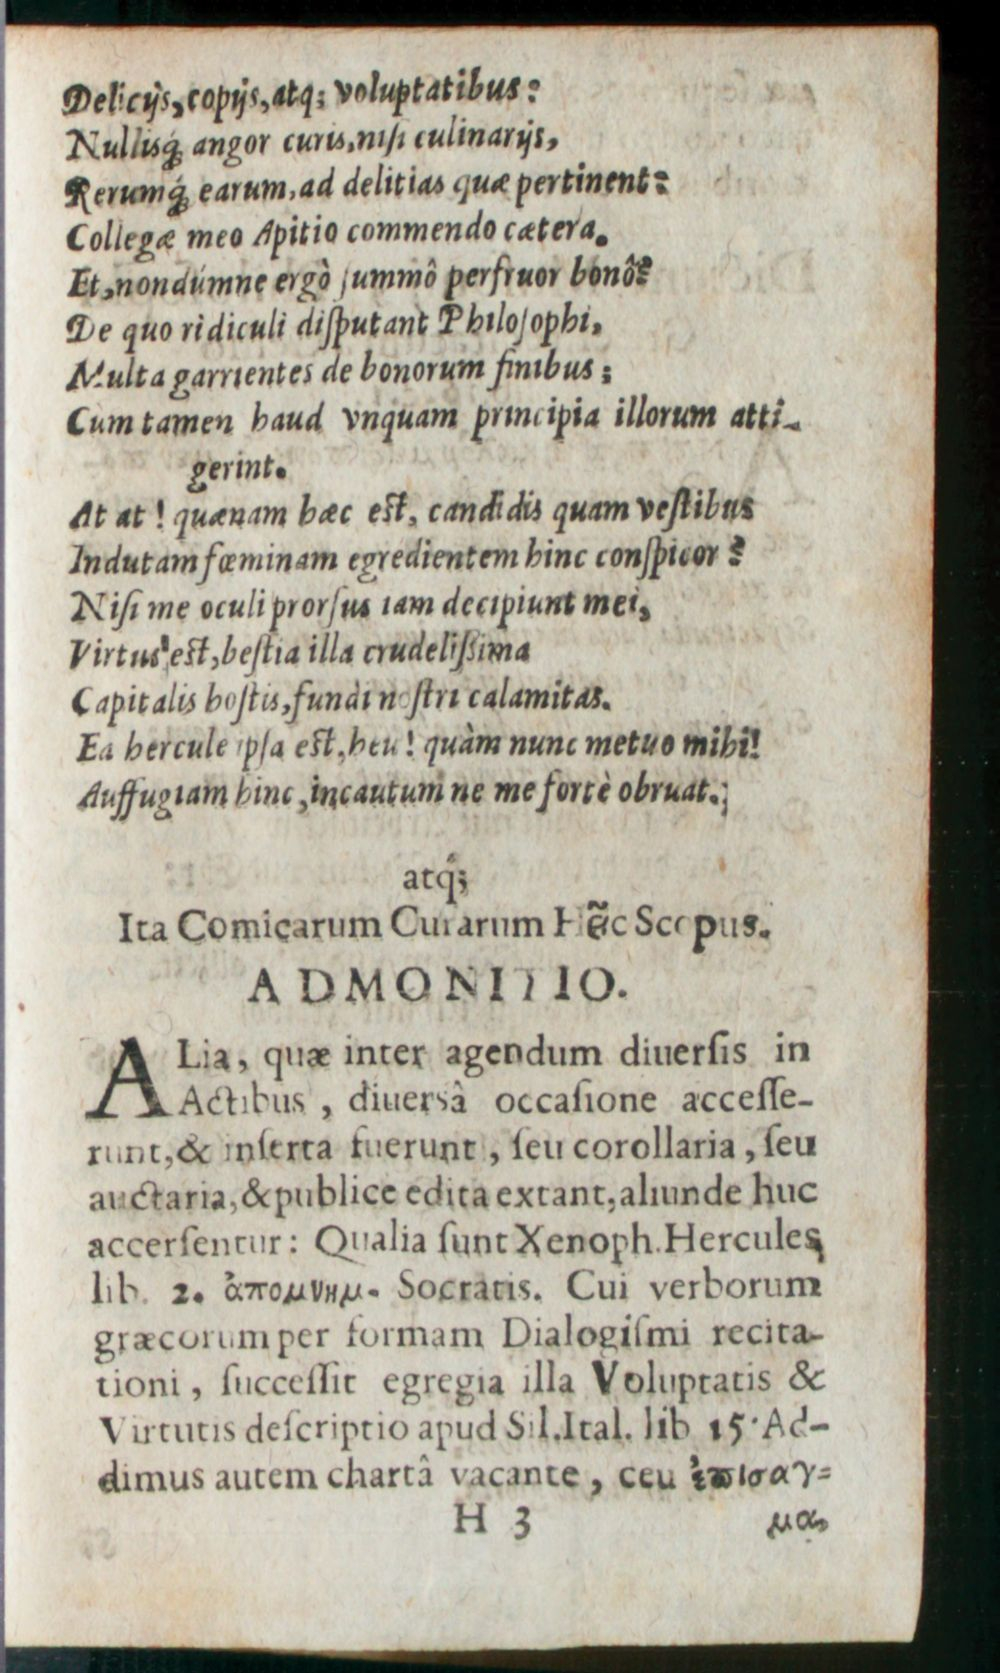 Delicijs, copijs, atq; voluptatibus:
Nullisq́; angor curis, nisi culinarijs,
Rerumq́; earum, ad delitias quæ pertinent:
Collegæ meo Apitio commendo cætera.
Et, nondúmne ergò ſummô perfruor bonô?
De quo ridiculi diſputant Philoſophi,
Multa garrientes de bonorum finibus;
Cum tamen haud vnquam principia illorum atti-
gerint.
At at! quænam hæc est, candidis quam veſtibus
Indutam fœminam egredientem hinc conſpicor?
Niſi me oculi prorſus iam decipiunt mei,
Virtus est, beſtia illa crudeliſsima
Capitalis hoſtis, fundi noſtri calamitas.
Ea hercule ipſa est, heu! quàm nunc metuo mihi!
Auffugiam hinc, incautum ne me fortè obruat.;
atq́;
Ita Comicarum Curarum Hẽc Scopus.
ADMONITIO.
ALia, quæ inter agendum diuerſis in
Actibus, diuersâ occaſione acceſſe-
runt, & inſerta fuerunt, ſeu corollaria, ſeu
auctaria, & publice edita extant, aliunde huc
accerſentur: Qualia ſunt Xenoph. Hercules
lib. 2. ἀπομνημ. Socratis. Cui verborum
græcorum per formam Dialogiſmi recita-
tioni, ſucceſſit egregia illa Voluptatis &
Virtutis deſcriptio apud Sil. Ital. lib 15. Ad-
dimus autem chartâ vacante, ceu ἐπισαγ=
H 3 μα,